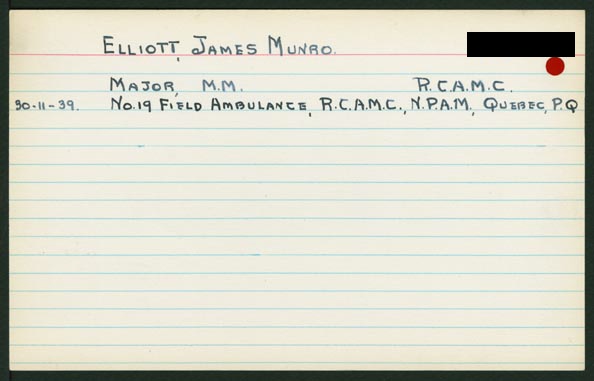 ELLIOTT, JAMES MUNRO.
MAJOR, M.M. R.C.A.M.C.
30-11-39. No.19 FIELD AMBULANCE, R.C.A.M.C., N.P.A.M., QUEBEC, P.Q